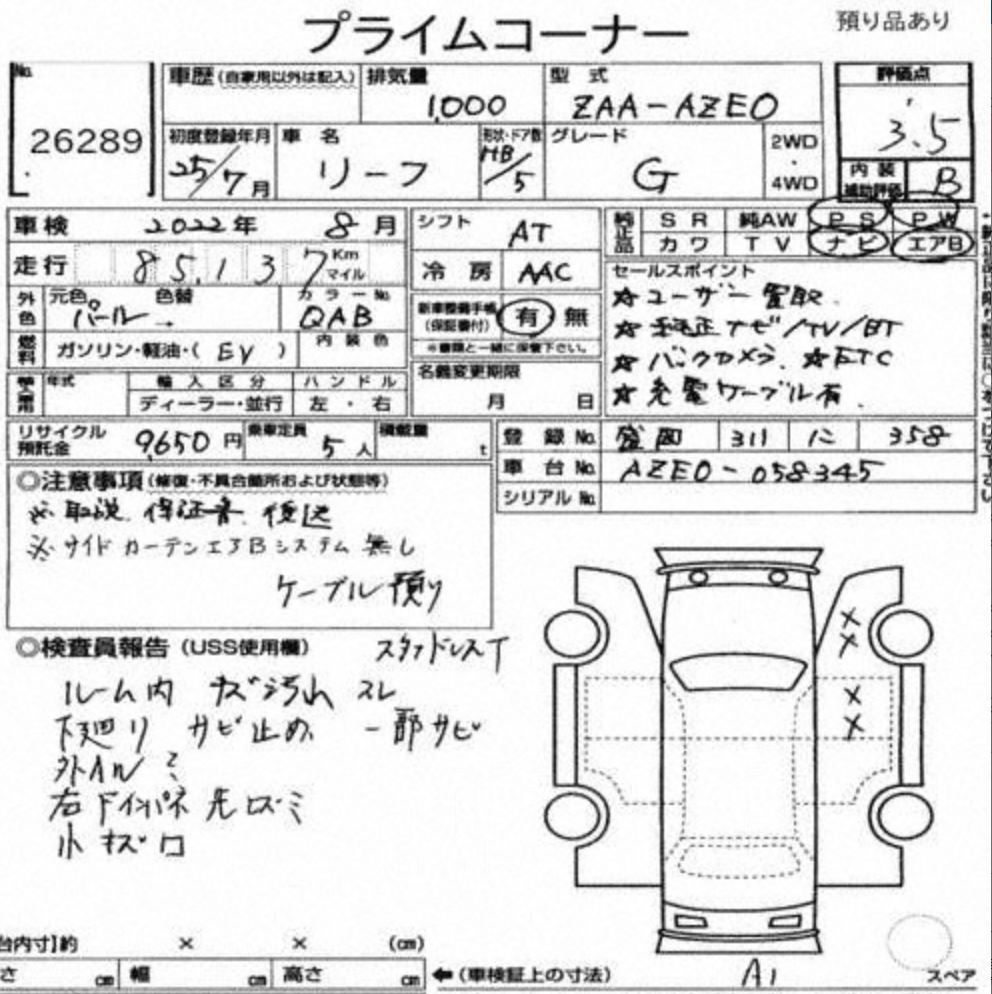 プライムコーナー
預り品あり
No.
26289
車歴(自家用以外は記入)
排気量
1,000
型 式
ZAA-AZE0
評価点
3.5
初度登録年月
25/7月
車 名
リーフ
形状・ドア数
HB/5
グレード
G
2WD
・
4WD
内 装
補助評価
B
車検
2022年 8月
走行
85,137
Km
マイル
外色
元色
パール
色替
→
カラーNo.
QAB
燃料
ガソリン・軽油・( EV )
内 装 色
年式
輸 入 区 分
ディーラー・並行
ハ ン ド ル
左 ・ 右
シフト
AT
冷 房
AAC
新車整備手帳
(保証書付)
有 無
※書類と一緒に保管下さい。
名義変更期限
月 日
純正品
S R 純AW P S P W
カ ワ T V ナ ビ エアB
セールスポイント
☆ユーザー買取
☆純正ナビ/TV/BT
☆バックカメラ. ☆ETC
☆充電ケーブル有.
リサイクル
預託金
9,650円
乗車定員
5人
積載量
t
登 録 No.
盛岡 311 に 358
車 台 No.
AZE0-058345
シリアル No.
◎注意事項(修復・不具合箇所および状態等)
※取説. 保証書. 後送
※サイドカーテンエアBシステム無し
ケーブル預り
◎検査員報告(USS使用欄)
スタッドレスT
ルーム内 キズ汚れ スレ
下廻り サビ止め 一部サビ
外AW ミ
小キズ
X
X
X
X
台内寸】約 × × (cm)
さ cm 幅 cm 高さ cm
←(車検証上の寸法)
A1
スペア